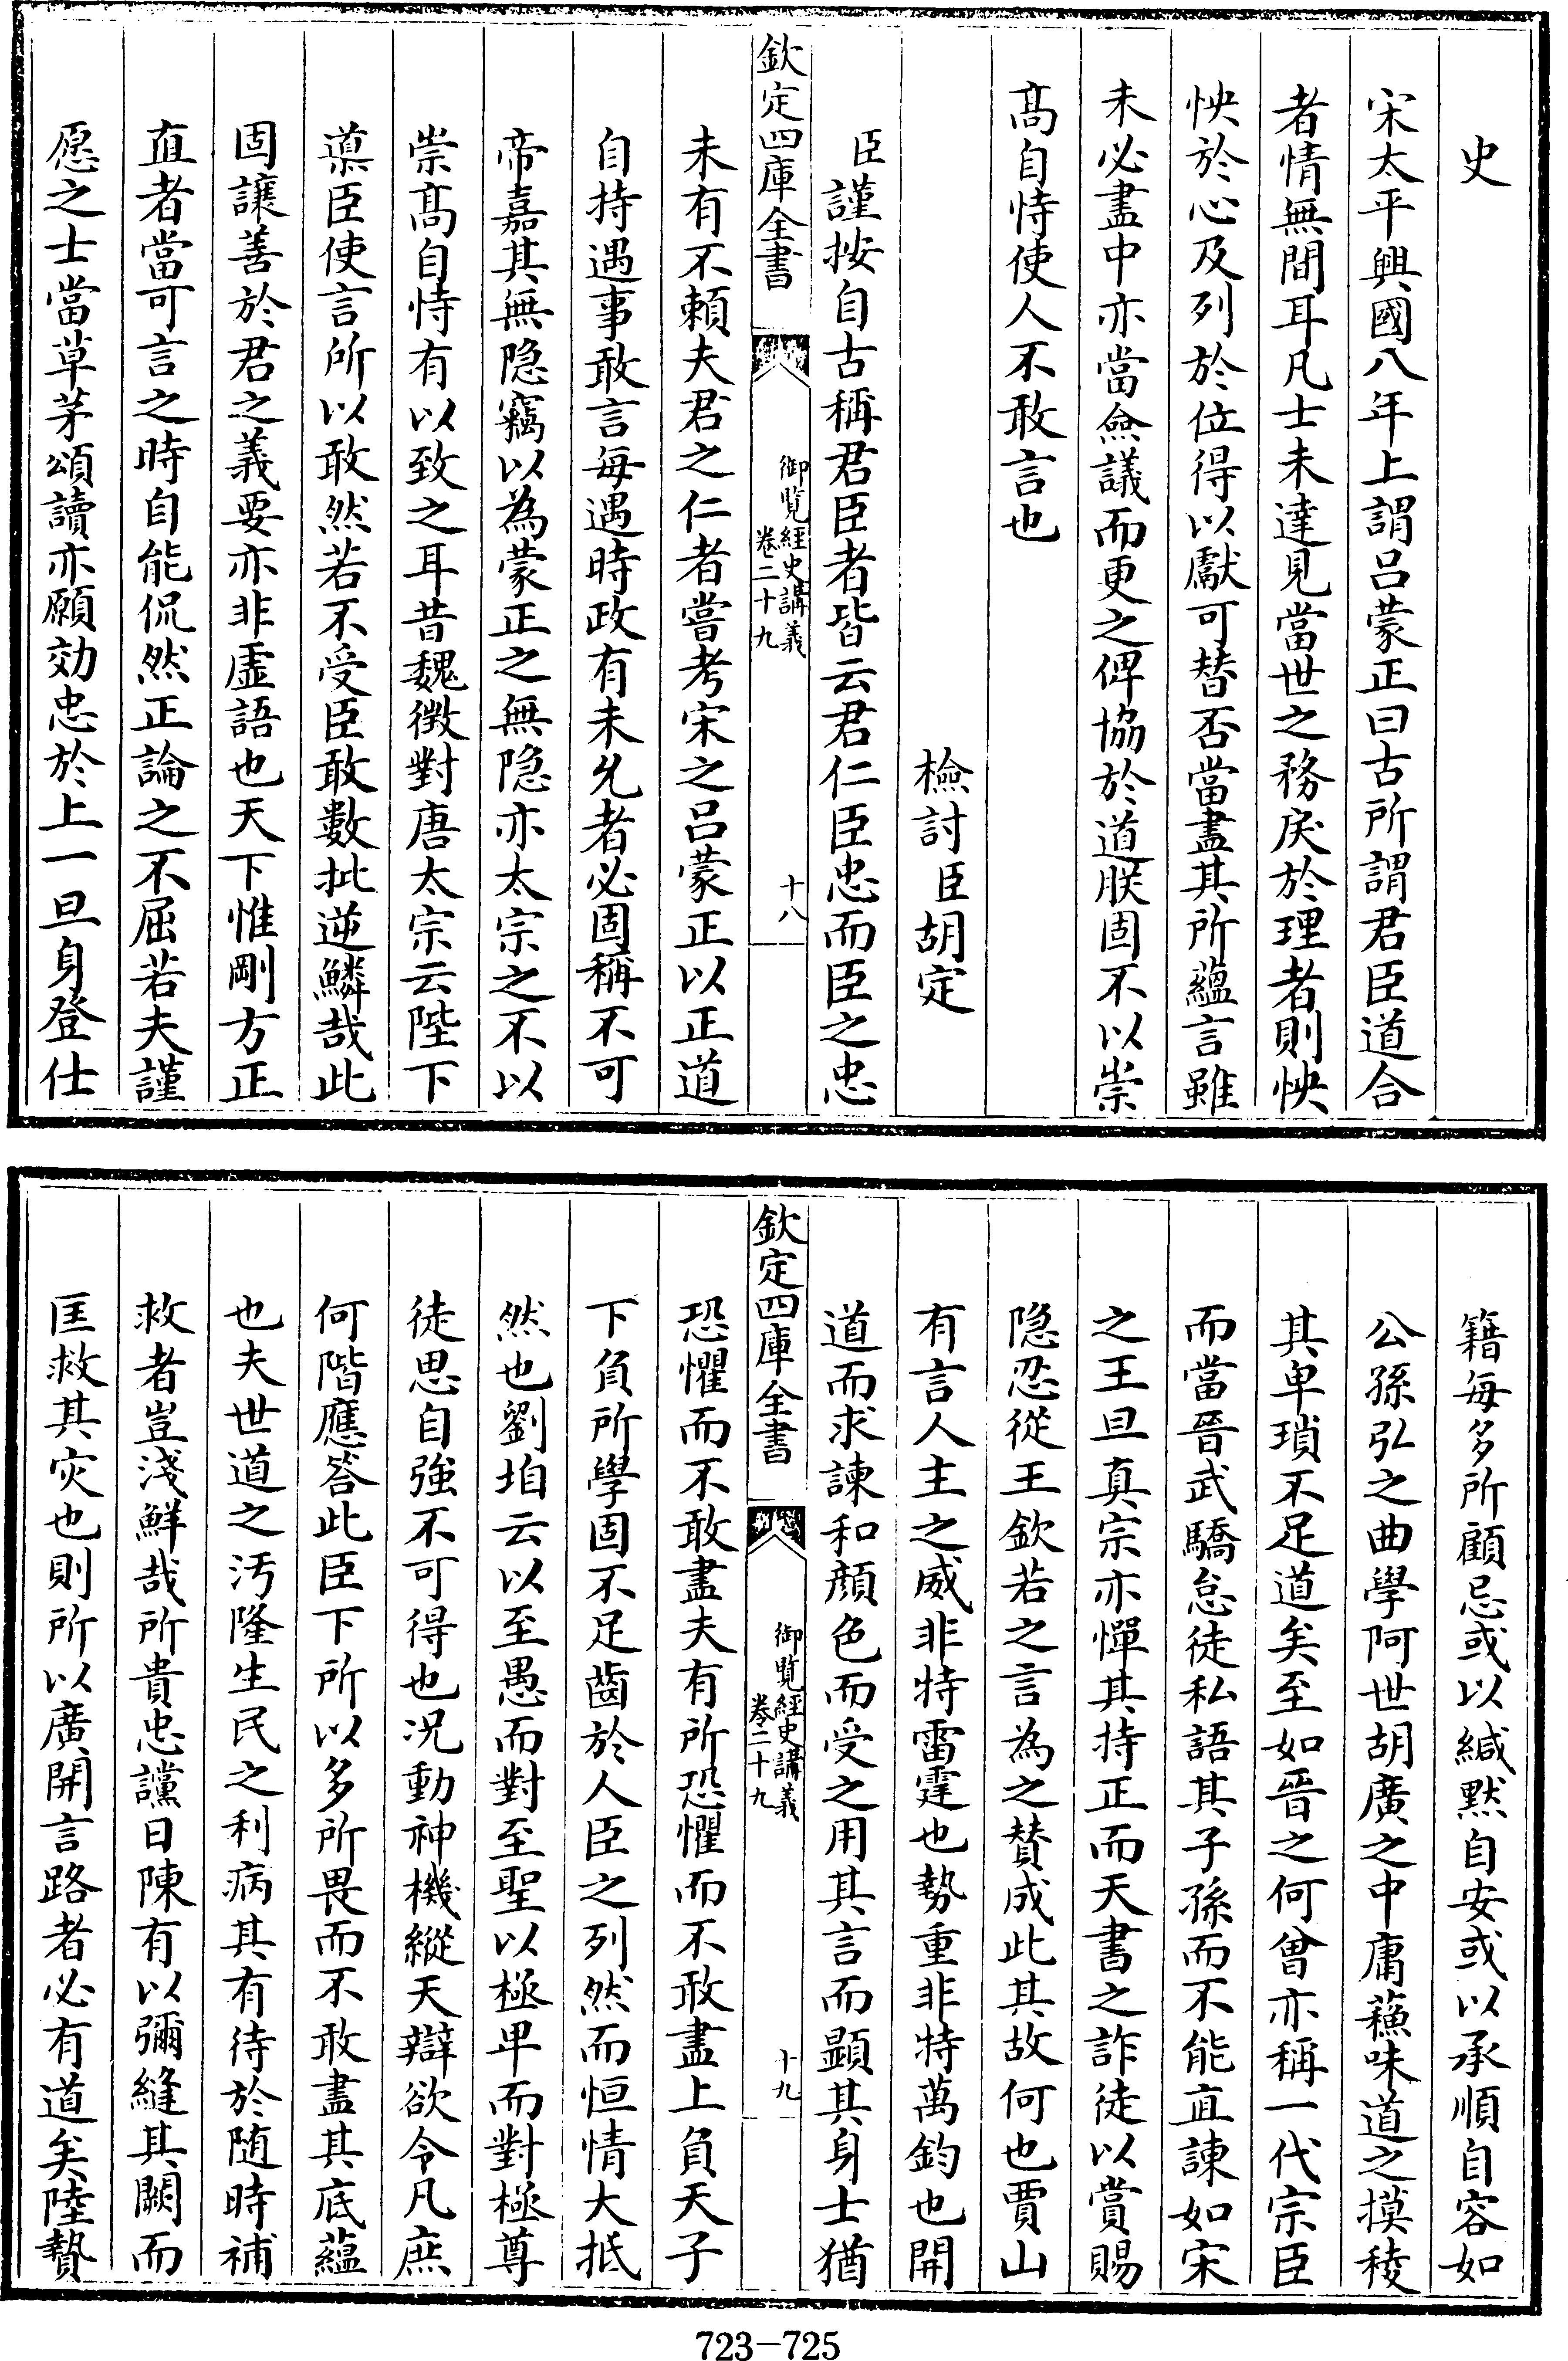 史
宋太平興國八年上謂呂蒙正曰古所謂君臣道合
者情無間耳凡士未達見當世之務戾於理者則怏
怏於心及列於位得以獻可替否當盡其所蘊言雖
未必盡中亦當僉議而更之俾協於道朕固不以崇
髙自恃使人不敢言也
檢討臣胡定
臣謹按自古稱君臣者皆云君仁臣忠而臣之忠
欽定四庫全書
御覽經史講義
卷二十九
十八
未有不頼夫君之仁者嘗考宋之呂蒙正以正道
自持遇事敢言每遇時政有未允者必固稱不可
帝嘉其無隐竊以為蒙正之無隐亦太宗之不以
崇髙自恃有以致之耳昔魏徴對唐太宗云陛下
導臣使言所以敢然若不受臣敢數批逆鱗哉此
固讓善於君之義要亦非虛語也天下惟剛方正
直者當可言之時自能侃然正論之不屈若夫謹
愿之士當草茅頌讀亦願効忠於上一旦身登仕
籍每多所顧忌或以緘黙自安或以承順自容如
公孫弘之曲學阿世胡廣之中庸蘓味道之摸稜
其卑瑣不足道矣至如晉之何曾亦稱一代宗臣
而當晉武驕怠徒私語其子孫而不能直諫如宋
之王旦真宗亦憚其持正而天書之詐徒以賞賜
隐忍從王欽若之言為之賛成此其故何也賈山
有言人主之威非特雷霆也勢重非特萬鈞也開
道而求諫和顔色而受之用其言而顯其身士猶
欽定四庫全書
御覽經史講義
卷二十九
十九
恐懼而不敢盡夫有所恐懼而不敢盡上負天子
下負所學固不足齒於人臣之列然而恒情大抵
然也劉洎云以至愚而對至聖以極卑而對極尊
徒思自強不可得也况動神機縱天辯欲令凡庶
何階應答此臣下所以多所畏而不敢盡其底蘊
也夫世道之汚隆生民之利病其有待於随時補
救者豈淺鮮哉所貴忠讜日陳有以彌縫其闕而
匡救其灾也則所以廣開言路者必有道矣陸贄
723-725